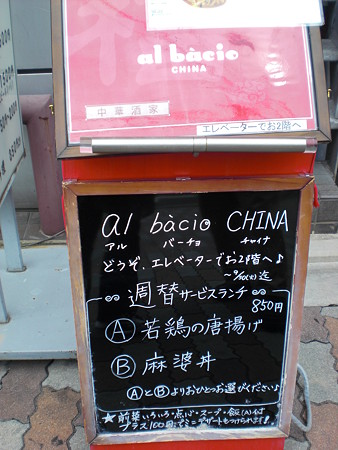 al bàcio
CHINA
中華酒家
エレベーターでお2階へ
al bàcio CHINA
アル バーチョ チャイナ
どうぞ、エレベーターでお2階へ♪
週替サービスランチ
850円
Ⓐ 若鶏の唐揚げ
Ⓑ 麻婆丼
ⒶとⒷよりおひとつお選びください♪
★前菜いろいろ・点心・スープ・飯(人)そば
プラス100円でミニデザートもつけられます!